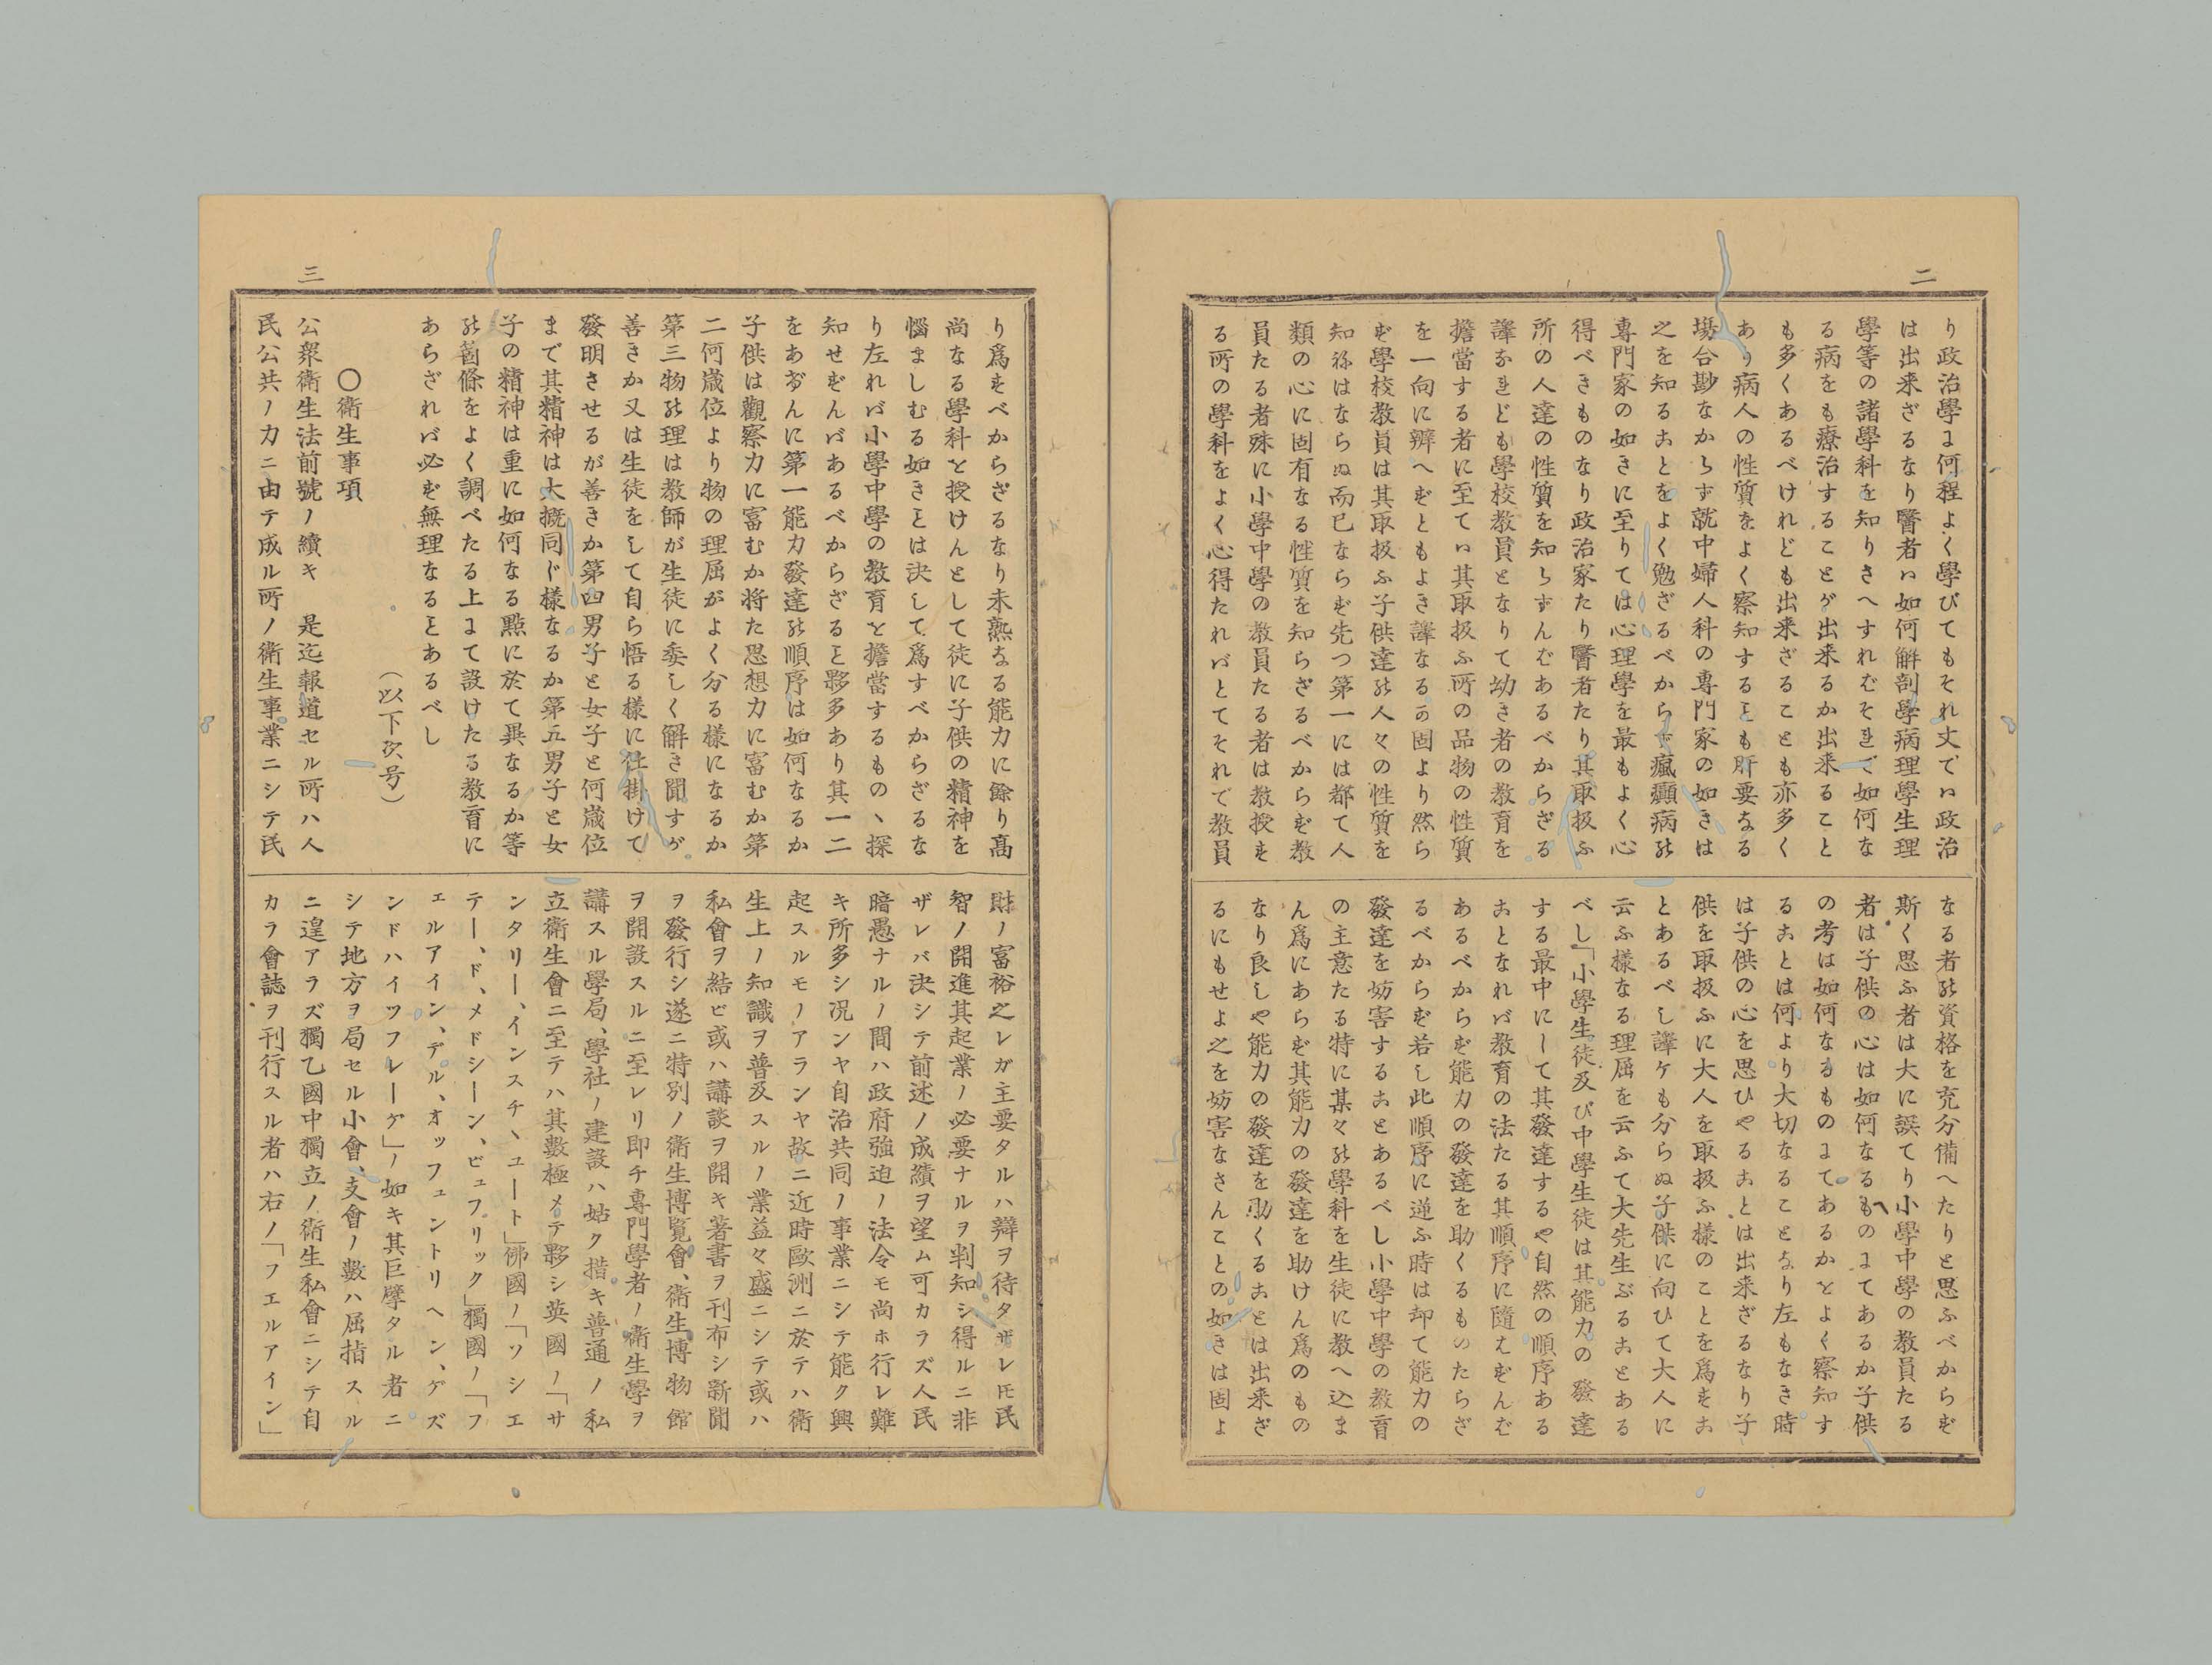 二
り政治學は何程よく學びてもそれ丈では政治
は出来ざるなり醫者は如何解剖學病理學生理
學等の諸學科を知りさへすればそれで如何な
る病をも療治することが出来るか出来ること
も多くあるべけれども出来ざることも亦多く
あり病人の性質をよく察知することも肝要なる
塲合尠なからず就中婦人科の専門家の如きは
之を知ることをよく勉ざるべからず瘋癲病の
専門家の如きに至りては心理學を最もよく心
得べきものなり政治家たり醫者たり其取扱ふ
所の人達の性質を知らずんばあるべからざる
譯なれども學校教員となりて幼き者の教育を
擔當する者に至ては其取扱ふ所の品物の性質
を一向に辨へずともよき譯なるの固より然ら
ず學校教員は其取扱ふ子供達の人々の性質を
知ねはならぬ而已ならず先つ第一には都て人
類の心に固有なる性質を知らざるべからず教
員たる者殊に小學中學の教員たる者は教授す
る所の學科をよく心得たればとてそれで教員
なる者の資格を充分備へたりと思ふべからず
斯く思ふ者は大に誤てり小學中學の教員たる
者は子供の心は如何なるものにてあるか子供
の考は如何なるものにてあるかとよく察知す
ることは何より大切なることなり左もなき時
は子供の心を思ひやることは出来ざるなり子
供を取扱ふに大人を取扱ふ様のことを爲すこ
とあるべし譯ケも分らぬ子供に向ひて大人に
云ふ様なる理屈を云ふて大先生ぶることある
べし「小學生徒及び中學生徒は其能力の發達
する最中にして其發達するや自然の順序ある
ことなれば教育の法たる其順序に隨はずんば
あるべからず能力の發達を助くるものたらざ
るべからず若し此順序に逆ふ時は却て能力の
發達を妨害することあるべし小學中學の教育
の主意たる特に某々の學科を生徒に教へ込ま
ん爲にあらず其能力の發達を助けん爲のもの
なり良しや能力の發達を助くることは出来ざ
るにもせよ之を妨害なさんことの如きは固よ
三
り爲すべからざるなり未熟なる能力に餘り髙
尚なる學科を授けんとして徒に子供の精神を
惱ましむる如きことは決して爲すべからざるな
り左れば小學中學の教育を擔當するもの丶探
知せずんばあるべからざること夥多あり其一二
をあげんに第一能力發達の順序は如何なるか
子供は觀察力に富むか将た思想力に富むか第
二何歳位より物の理屈がよく分る様になるか
第三物の理は教師が生徒に委しく解き聞すが
善きか又は生徒をして自ら悟る様に仕掛けて
發明させるが善きか第四男子と女子と何歳位
まで其精神は大概同じ様なるか第五男子と女
子の精神は重に如何なる點に於て異なるか等
の箇條をよく調べたる上にて設けたる教育に
あらざれば必ず無理なることあるべし
（以下次号）
〇衛生事項
公衆衛生法前號ノ續キ　是迄報道セル所ハ人
民公共ノ力ニ由テ成ル所ノ衛生事業ニシテ民
財ノ富裕之レガ主要タルハ辯ヲ待タザレ𪜈民
智ノ開進其起業ノ必要ナルヲ判知シ得ルニ非
ザレバ決シテ前述ノ成績ヲ望ム可カラズ人民
暗愚ナルノ間ハ政府強迫ノ法令モ尚ホ行レ難
キ所多シ况ンヤ自治共同ノ事業ニシテ能ク興
起スルモノアランヤ故ニ近時歐洲ニ於テハ衛
生上ノ知識ヲ普及スルノ業益々盛ニシテ或ハ
私會ヲ結ビ或ハ講談ヲ開キ著書ヲ刊布シ新聞
ヲ發行シ遂ニ特別ノ衛生博覧會、衛生博物館
ヲ開設スルニ至レリ即チ専門學者ノ衛生學ヲ
講スル學局、學社ノ建設ハ姑ク措キ普通ノ私
立衛生會ニ至テハ其數極メテ夥シ英國ノ「サ
ンタリー、インスチ丶ユート」佛國ノ「ソシエ
テー、ド、メドシーン、ピュブリック」獨國ノ「フ
エルアイン、デル、オッフェントリヘン、ゲズ
ンドハイツフレーゲ」ノ如キ其巨擘タル者ニ
シテ地方ヲ局セル小會、支會ノ數ハ屈指スル
ニ遑アラズ獨乙國中獨立ノ衛生私會ニシテ自
カラ會誌ヲ刊行スル者ハ右ノ「フエルアイン」